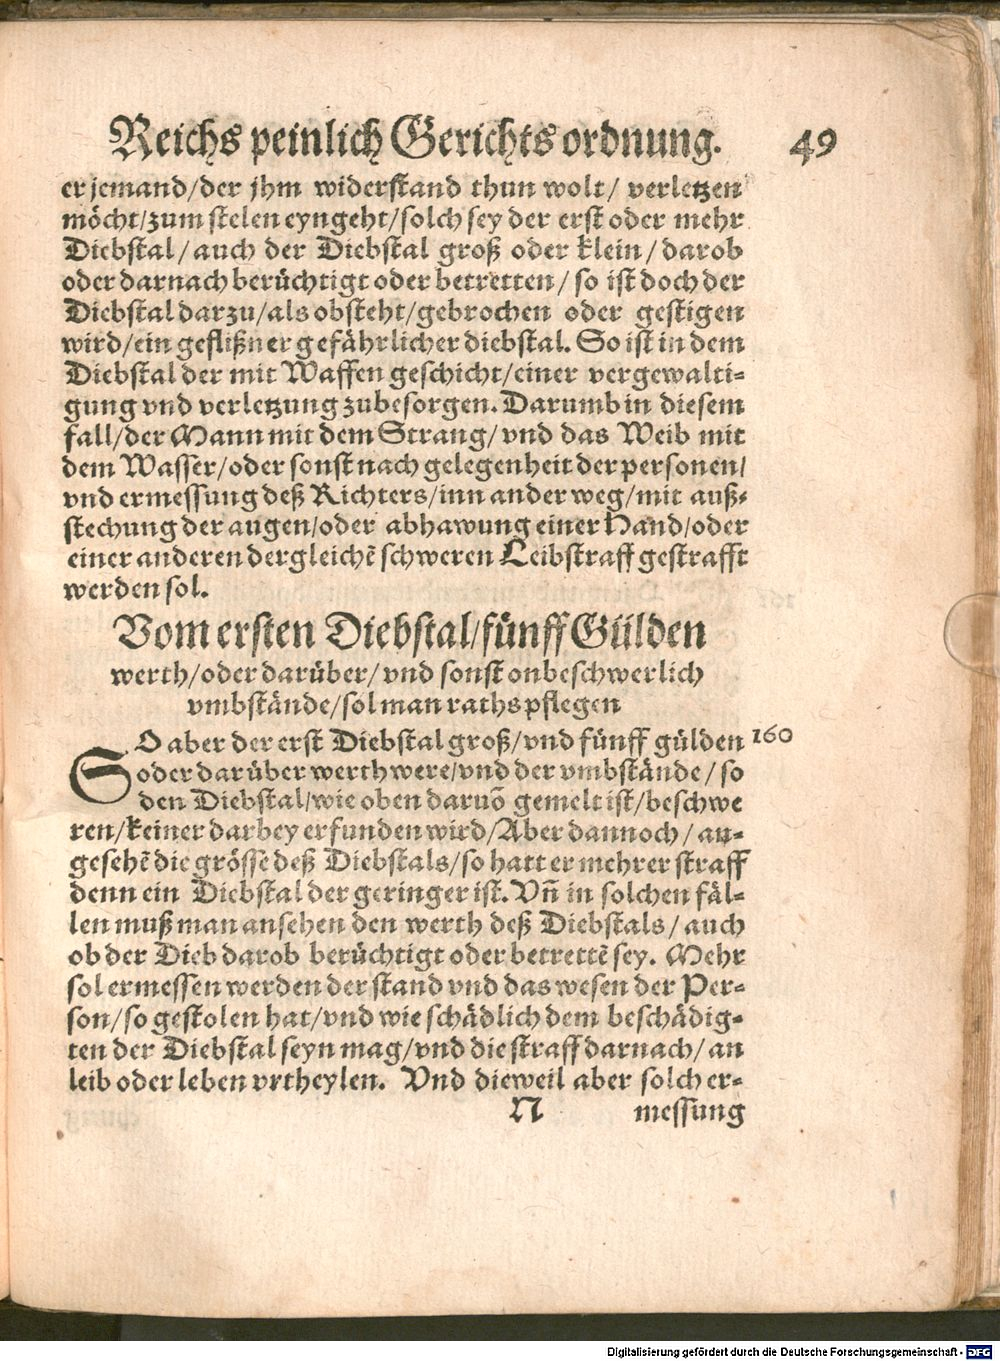 Reichs peinlich Gerichts ordnung. 49
er jemand/der jhm widerstand thun wolt/ verletzen
möcht/zum stelen eyngeht/solch sey der erst oder mehr
Diebstal/auch der Diebstal groß oder klein/darob
oder darnach berüchtigt oder betretten/so ist doch der
Diebstal darzu/als obsteht/gebrochen oder gestigen
wird/ein geflißner gefährlicher diebstal. So ist in dem
Diebstal der mit Waffen geschicht/einer vergewalti-
gung vnd verletzung zubesorgen. Darumb in diesem
fall/der Mann mit dem Strang/vnd das Weib mit
dem Wasser/oder sonst nach gelegenheit der personen/
vnd ermessung deß Richters/inn ander weg/mit auß-
stechung der augen/oder abhawung einer Hand/oder
einer anderen dergleichē schweren Leibstraff gestrafft
werden sol.
Vom ersten Diebstal/fünff Gülden
werth/oder darüber/vnd sonst onbeschwerlich
vmbstände/sol man raths pflegen
SO aber der erst Diebstal groß/vnd fünff gülden 160
oder darüber werth were/vnd der vmbstände/so
den Diebstal/wie oben daruō gemelt ist/beschwe
ren/keiner darbey erfunden wird/Aber dannoch/an-
gesehē die grösse deß Diebstals/so hatt er mehrer straff
denn ein Diebstal der geringer ist. Vñ in solchen fäl-
len muß man ansehen den werth deß Diebstals/auch
ob der Dieb darob berüchtigt oder betrettē sey. Mehr
sol ermessen werden der stand vnd das wesen der Per-
son/so gestolen hat/vnd wie schädlich dem beschädig-
ten der Diebstal seyn mag/vnd die straff darnach/an
leib oder leben vrtheylen. Vnd dieweil aber solch er-
N messung
Digitalisierung gefördert durch die Deutsche Forschungsgemeinschaft - DFG